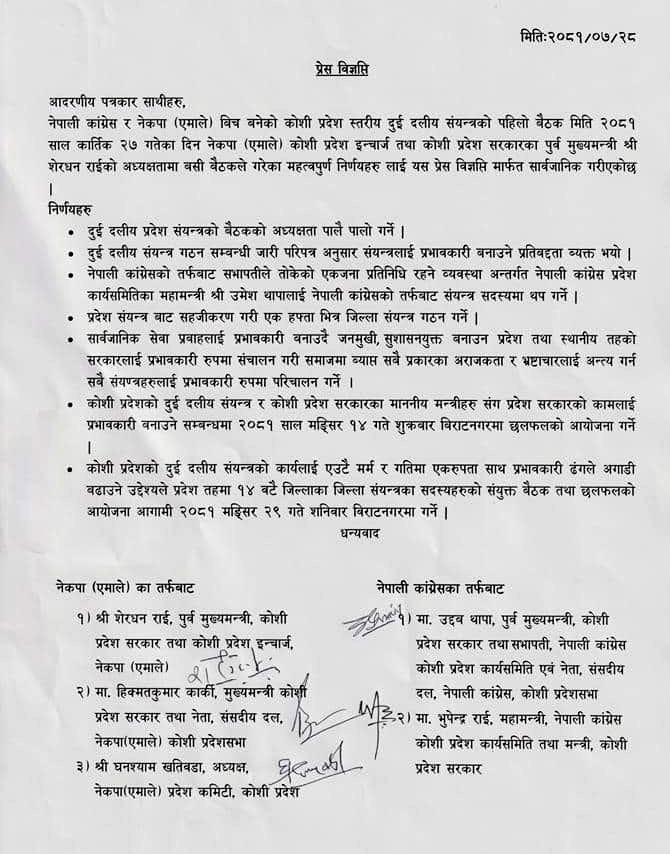 मितिः२०८१/०७/२८
प्रेस विज्ञप्ति
आदरणीय पत्रकार साथीहरु,
नेपाली कांग्रेस र नेकपा (एमाले) बिच बनेको कोशी प्रदेश स्तरीय दुई दलीय संयन्त्रको पहिलो बैठक मिति २०८१
साल कार्तिक २७ गतेका दिन नेकपा (एमाले) कोशी प्रदेश इन्चार्ज तथा कोशी प्रदेश सरकारका पुर्व मुख्यमन्त्री श्री
शेरधन राईको अध्यक्षतामा बसी बैठकले गरेका महत्वपुर्ण निर्णयहरु लाई यस प्रेस विज्ञप्ति मार्फत सार्वजानिक गरीएकोछ
|
निर्णयहरु
• दुई दलीय प्रदेश संयन्त्रको बैठकको अध्यक्षता पालै पालो गर्ने |
• दुई दलीय संयन्त्र गठन सम्बन्धी जारी परिपत्र अनुसार संयन्त्रलाई प्रभावकारी बनाउने प्रतिवद्दता व्यक्त भयो |
• नेपाली कांग्रेसको तर्फबाट सभापतीले तोकेको एकजना प्रतिनिधि रहने व्यवस्था अन्तर्गत नेपाली कांग्रेस प्रदेश
कार्यसमितिका महामन्त्री श्री उमेश थापालाई नेपाली कांग्रेसको तर्फबाट संयन्त्र सदस्यमा थप गर्ने |
• प्रदेश संयन्त्र बाट सहजीकरण गरी एक हफ्ता भित्र जिल्ला संयन्त्र गठन गर्ने |
• सार्वजानिक सेवा प्रवाहलाई प्रभावकारी बनाउदै जनमुखी, सुशासनयुक्त बनाउन प्रदेश तथा स्थानीय तहको
सरकारलाई प्रभावकारी रुपमा संचालन गरी समाजमा व्याप्त सवै प्रकारका अराजकता र भ्रष्टाचारलाई अन्त्य गर्न
सबै संयण्त्रहरुलाई प्रभावकारी रुपमा परिचालन गर्ने ।
• कोशी प्रदेशको दुई दलीय संयन्त्र र कोशी प्रदेश सरकारका माननीय मन्त्रीहरु संग प्रदेश सरकारको कामलाई
प्रभावकारी बनाउने सम्बन्धमा २०८१ साल मङ्सिर १४ गते शुक्रबार बिराटनगरमा छलफलको आयोजना गर्ने
|
• कोशी प्रदेशको दुई दलीय संयन्त्रको कार्यलाई एउटै मर्म र गतिमा एकरुपता साथ प्रभावकारी ढंगले अगाडी
बढाउने उद्देश्यले प्रदेश तहमा १४ वटै जिल्लाका जिल्ला संयन्त्रका सदस्यहरुको संयुक्त बैठक तथा छलफलको
आयोजना आगामी २०८१ मङ्सिर २९ गते शनिबार बिराटनगरमा गर्ने |
धन्यवाद
नेकपा (एमाले) का तर्फबाट
१) श्री शेरधन राई, पुर्व मुख्यमन्त्री, कोशी
प्रदेश सरकार तथा कोशी प्रदेश इन्चार्ज,
नेकपा (एमाले)
२) मा. हिक्मतकुमार कार्की, मुख्यमन्त्री कोशी
प्रदेश सरकार तथा नेता, संसदीय दल,
नेकपा(एमाले) कोशी प्रदेशसभा
३) श्री घनश्याम खतिवडा, अध्यक्ष,
नेकपा(एमाले) प्रदेश कमिटी, कोशी प्रदेश
नेपाली कांग्रेसका तर्फबाट
१) मा. उद्दव थापा, पुर्व मुख्यमन्त्री, कोशी
प्रदेश सरकार तथा सभापती, नेपाली कांग्रेस
कोशी प्रदेश कार्यसमिति एवं नेता, संसदीय
दल, नेपाली कांग्रेस, कोशी प्रदेशसभा
२) मा. भुपेन्द्र राई, महामन्त्री, नेपाली कांग्रेस
कोशी प्रदेश कार्यसमिति तथा मन्त्री, कोशी
प्रदेश सरकार